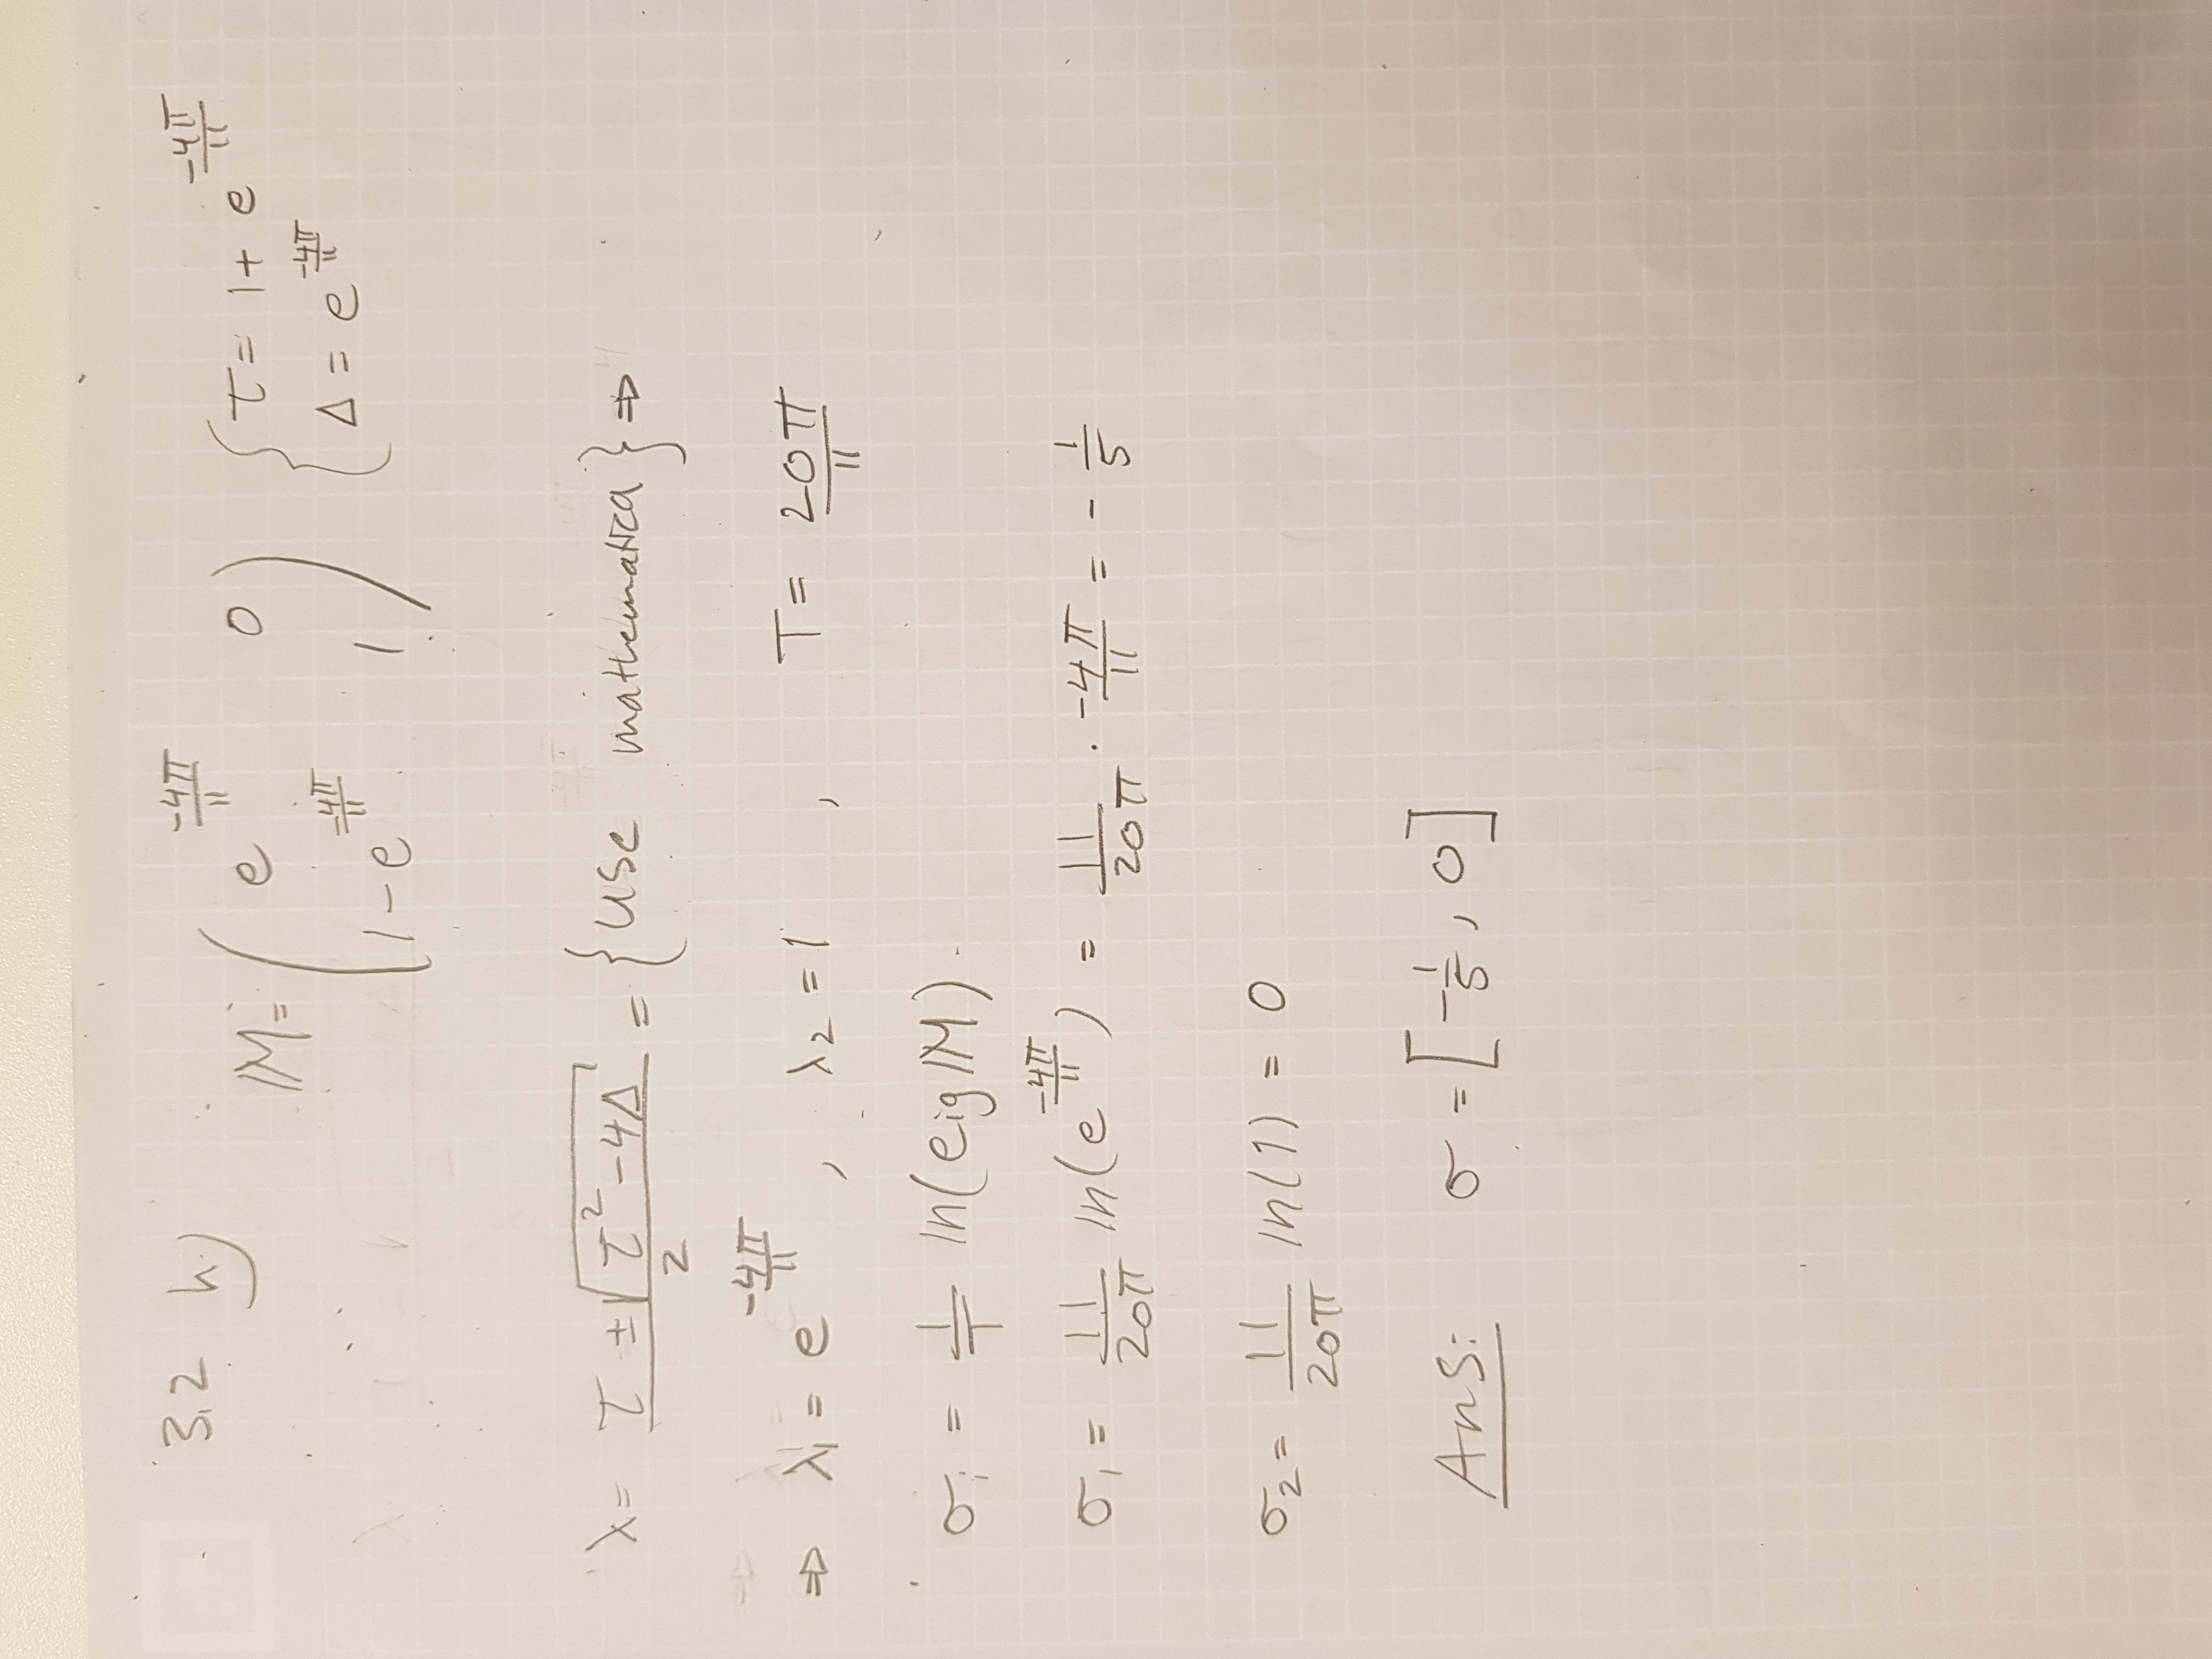 3.2 h)
𝕄 = ( e^(-4π/11) 0 ; 1 - e^(-4π/11) 1 ) { τ = 1 + e^(-4π/11) ; Δ = e^(-4π/11)
λ = (τ ± √(τ² - 4Δ))/2 = {use mathematica} ⇒
⇒ λ₁ = e^(-4π/11) , λ₂ = 1 , T = 20π/11
σᵢ = 1/T ln(eig 𝕄).
σ₁ = 11/20π ln(e^(-4π/11)) = 11/20π · -4π/11 = - 1/5
σ₂ = 11/20π ln(1) = 0
Ans: σ = [-1/5, 0]